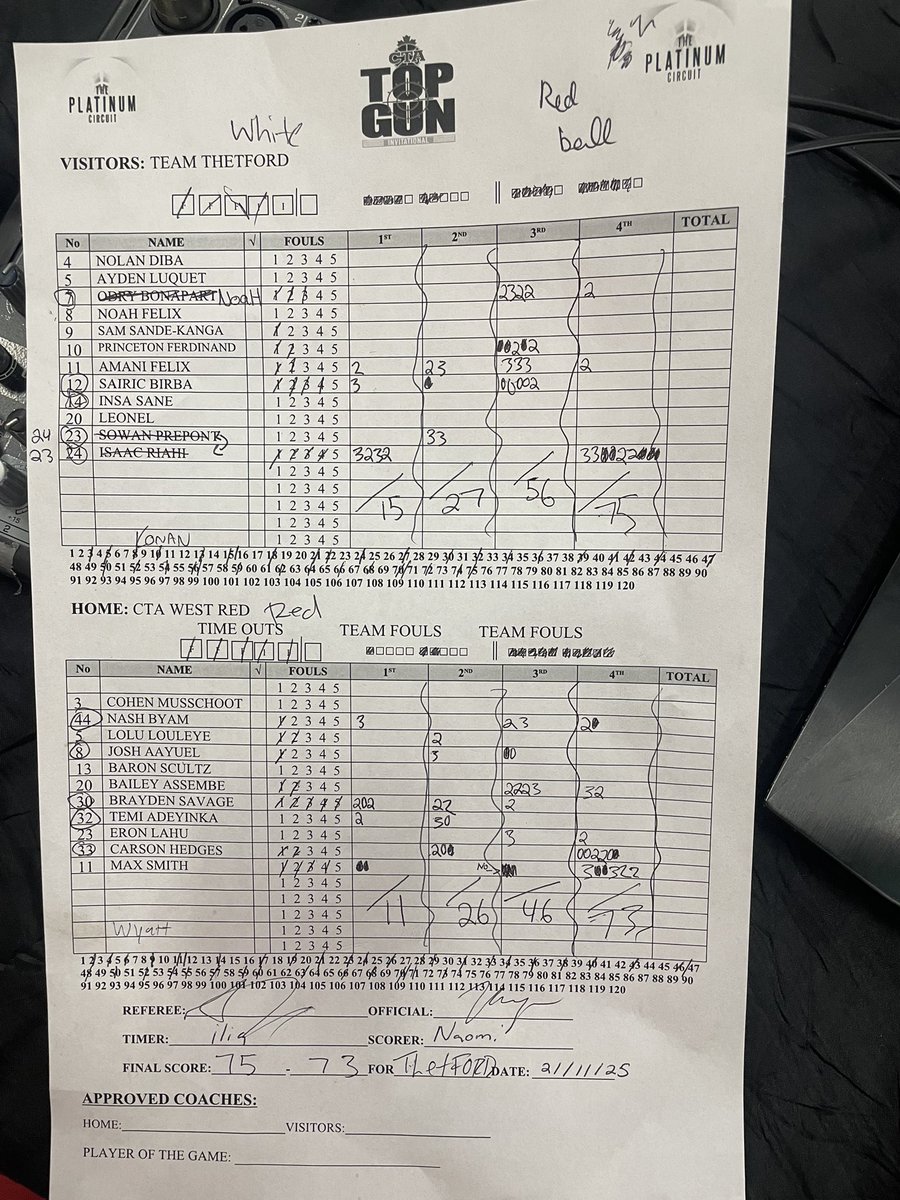 THE PLATINUM CIRCUIT
CTA
TOP GUN
INVITATIONAL
THE PLATINUM CIRCUIT
White
Red
ball
VISITORS: TEAM THETFORD
No NAME √ FOULS 1ST 2ND 3RD 4TH TOTAL
4 NOLAN DIBA 1 2 3 4 5
5 AYDEN LUQUET 1 2 3 4 5
7 ODRY BONAPART NOAH 1 2 3 4 5 2322 2
8 NOAH FELIX 1 2 3 4 5
9 SAM SANDE-KANGA 1 2 3 4 5
10 PRINCETON FERDINAND 1 2 3 4 5
11 AMANI FELIX 1 2 3 4 5 2 23 333 2
12 SAIRIC BIRBA 1 2 3 4 5 3
14 INSA SANE 1 2 3 4 5
20 LEONEL 1 2 3 4 5
24 23 SOWAN PREPONT 1 2 3 4 5 33
23 24 ISAAC RIAHI 1 2 3 4 5 3232
1 2 3 4 5
1 2 3 4 5
1 2 3 4 5 15 27 56 75
1 2 3 4 5
KONAN 1 2 3 4 5
1 2 3 4 5 6 7 8 9 10 11 12 13 14 15 16 17 18 19 20 21 22 23 24 25 26 27 28 29 30 31 32 33 34 35 36 37 38 39 40 41 42 43 44 45 46 47
48 49 50 51 52 53 54 55 56 57 58 59 60 61 62 63 64 65 66 67 68 69 70 71 72 73 74 75 76 77 78 79 80 81 82 83 84 85 86 87 88 89 90
91 92 93 94 95 96 97 98 99 100 101 102 103 104 105 106 107 108 109 110 111 112 113 114 115 116 117 118 119 120
HOME: CTA WEST RED Red
TIME OUTS TEAM FOULS TEAM FOULS
No NAME √ FOULS 1ST 2ND 3RD 4TH TOTAL
1 2 3 4 5
3 COHEN MUSSCHOOT 1 2 3 4 5
44 NASH BYAM 1 2 3 4 5 3 23
5 LOLU LOULEYE 1 2 3 4 5 2
8 JOSH AAYUEL 1 2 3 4 5 3
13 BARON SCULTZ 1 2 3 4 5
20 BAILEY ASSEMBE 1 2 3 4 5 2223 32
30 BRAYDEN SAVAGE 1 2 3 4 5 202 22 2
32 TEMI ADEYINKA 1 2 3 4 5 2 30
23 ERON LAHU 1 2 3 4 5 3 2
33 CARSON HEDGES 1 2 3 4 5
11 MAX SMITH 1 2 3 4 5 No
1 2 3 4 5
1 2 3 4 5
1 2 3 4 5 11 26 46 73
Wyatt 1 2 3 4 5
1 2 3 4 5
1 2 3 4 5 6 7 8 9 10 11 12 13 14 15 16 17 18 19 20 21 22 23 24 25 26 27 28 29 30 31 32 33 34 35 36 37 38 39 40 41 42 43 44 45 46 47
48 49 50 51 52 53 54 55 56 57 58 59 60 61 62 63 64 65 66 67 68 69 70 71 72 73 74 75 76 77 78 79 80 81 82 83 84 85 86 87 88 89 90
91 92 93 94 95 96 97 98 99 100 101 102 103 104 105 106 107 108 109 110 111 112 113 114 115 116 117 118 119 120
REFEREE: OFFICIAL:
TIMER: ilia SCORER: Naomi
FINAL SCORE: 75 - 73 FOR THETFORD DATE: 21/11/25
APPROVED COACHES:
HOME: VISITORS:
PLAYER OF THE GAME: